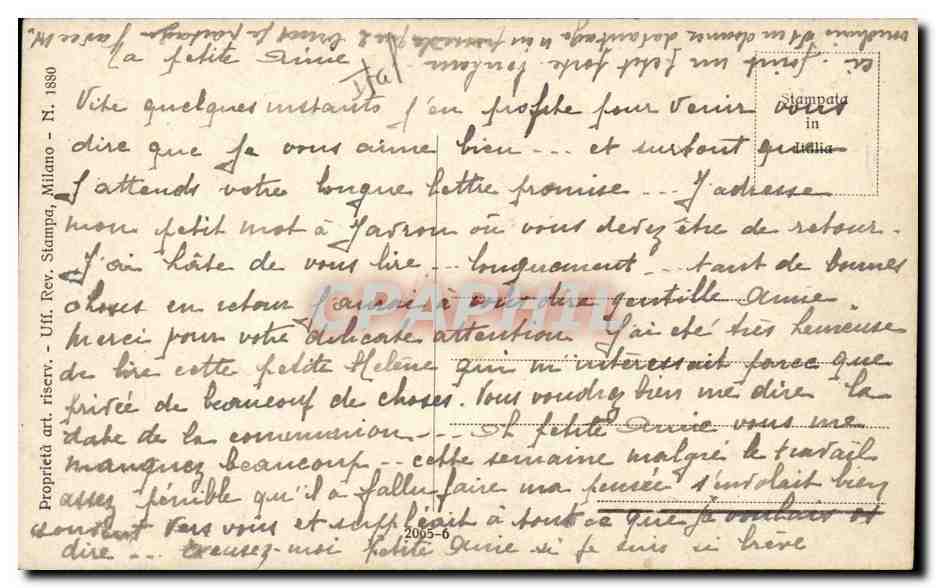 Ma petite Amie
Vite quelques instants j'en profite pour venir vous
dire que je vous aime bien ... et surtout que
j'attends votre longue lettre promise ... J'adresse
mon petit mot à Javron où vous devez être de retour.
J'ai hâte de vous lire ... longuement ... tant de bonnes
choses en retour j'aurai à vous dire gentille Amie.
Merci pour votre délicate attention J'ai été très heureuse
de lire cette petite Hélène qui m'intéressait parce que
privée de beaucoup de choses. Vous voudrez bien me dire la
date de la communion ... Ah petite Amie vous me
manquez beaucoup .. cette semaine malgré le travail
assez pénible qu'il a fallu faire ma pensée s'envolait bien
souvent vers vous et suppléait à tout ce que je voulais vs
dire ... Excusez-moi petite Amie si je suis si brève
ci-joint un petit
Stampata
in
Italia
Proprietà art. riserv. - Uff. Rev. Stampa, Milano - N. 1880
2065-6
CPAPHIL